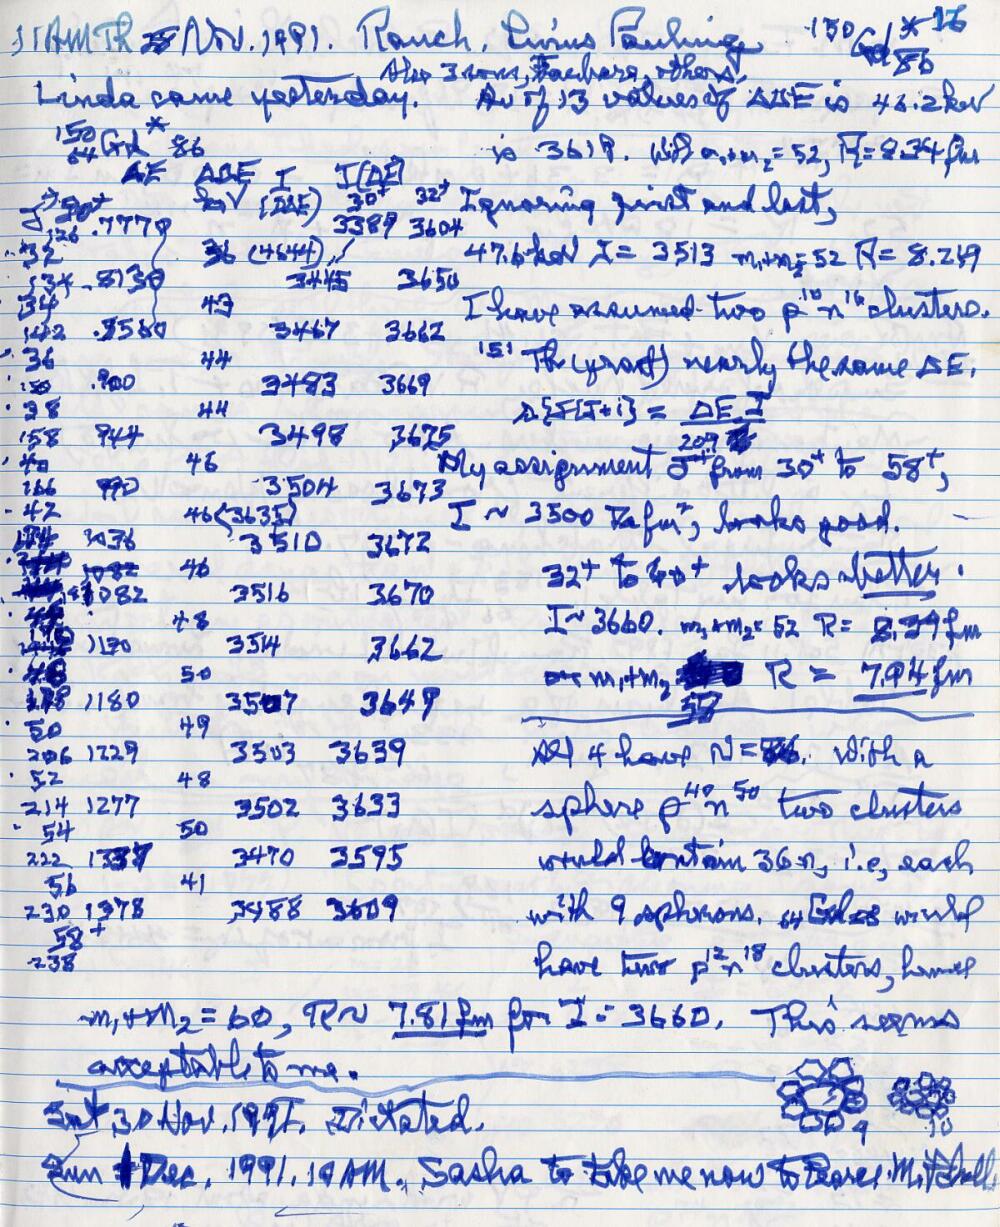 11AM Th Nov. 1991. Ranch. Linus Pauling. 150Gd*86 16
Also 3 sons, Barbara, others.
Linda came yesterday. Av of 13 values of ΔΔE is 46.2 keV
150 64Gd* 86 is 3618. With m1+m2=52, R=8.34 fm
ΔE ΔΔE I I(ΔE)
keV (ΔΔE) 30+ 32+ Ignoring first and last,
30+
126 .7770 3389 3604
32 36 (4644) 47.6 keV I = 3513 m1+m2=52 R = 8.219
134 .8130 3445 3650
34 43 I have assumed two p10n16 clusters.
142 .8560 3467 3662
36 44 151 Tb (prest) nearly the same ΔE.
150 .900 3483 3669
38 44 Δ{J(J+1)} = ΔE I / 20.9
158 944 3498 3675
40 46 My assignment J+ from 30+ to 58+,
166 990 3504 3673
42 46 (3635) I ~ 3500 Da fm2, looks good.
174 1036 3510 3672
46 32+ to 60+ looks better.
1082 3516 3670
48 I ~ 3660. m1+m2=52 R = 8.39 fm
1130 3514 3662
50 or m1+m2 58 R = 7.94 fm
1180 3507 3649
50 49
206 1229 3503 3639 All 4 have N=86. With a
52 48
214 1277 3502 3633 sphere p40n50 two clusters
54 50
222 1337 3470 3595 would contain 36n, i.e, each
56 41
230 1378 3488 3609 with 9 spherons. 64Gd would
58+
238 have two p12n18 clusters, hence
m1+m2 = 60, R ~ 7.81 fm for I = 3660. This seems
acceptable to me.
9 10
Sat 30 Nov. 1991. Dictated.
Sun 1 Dec. 1991. 10 AM. Sasha to take me now to